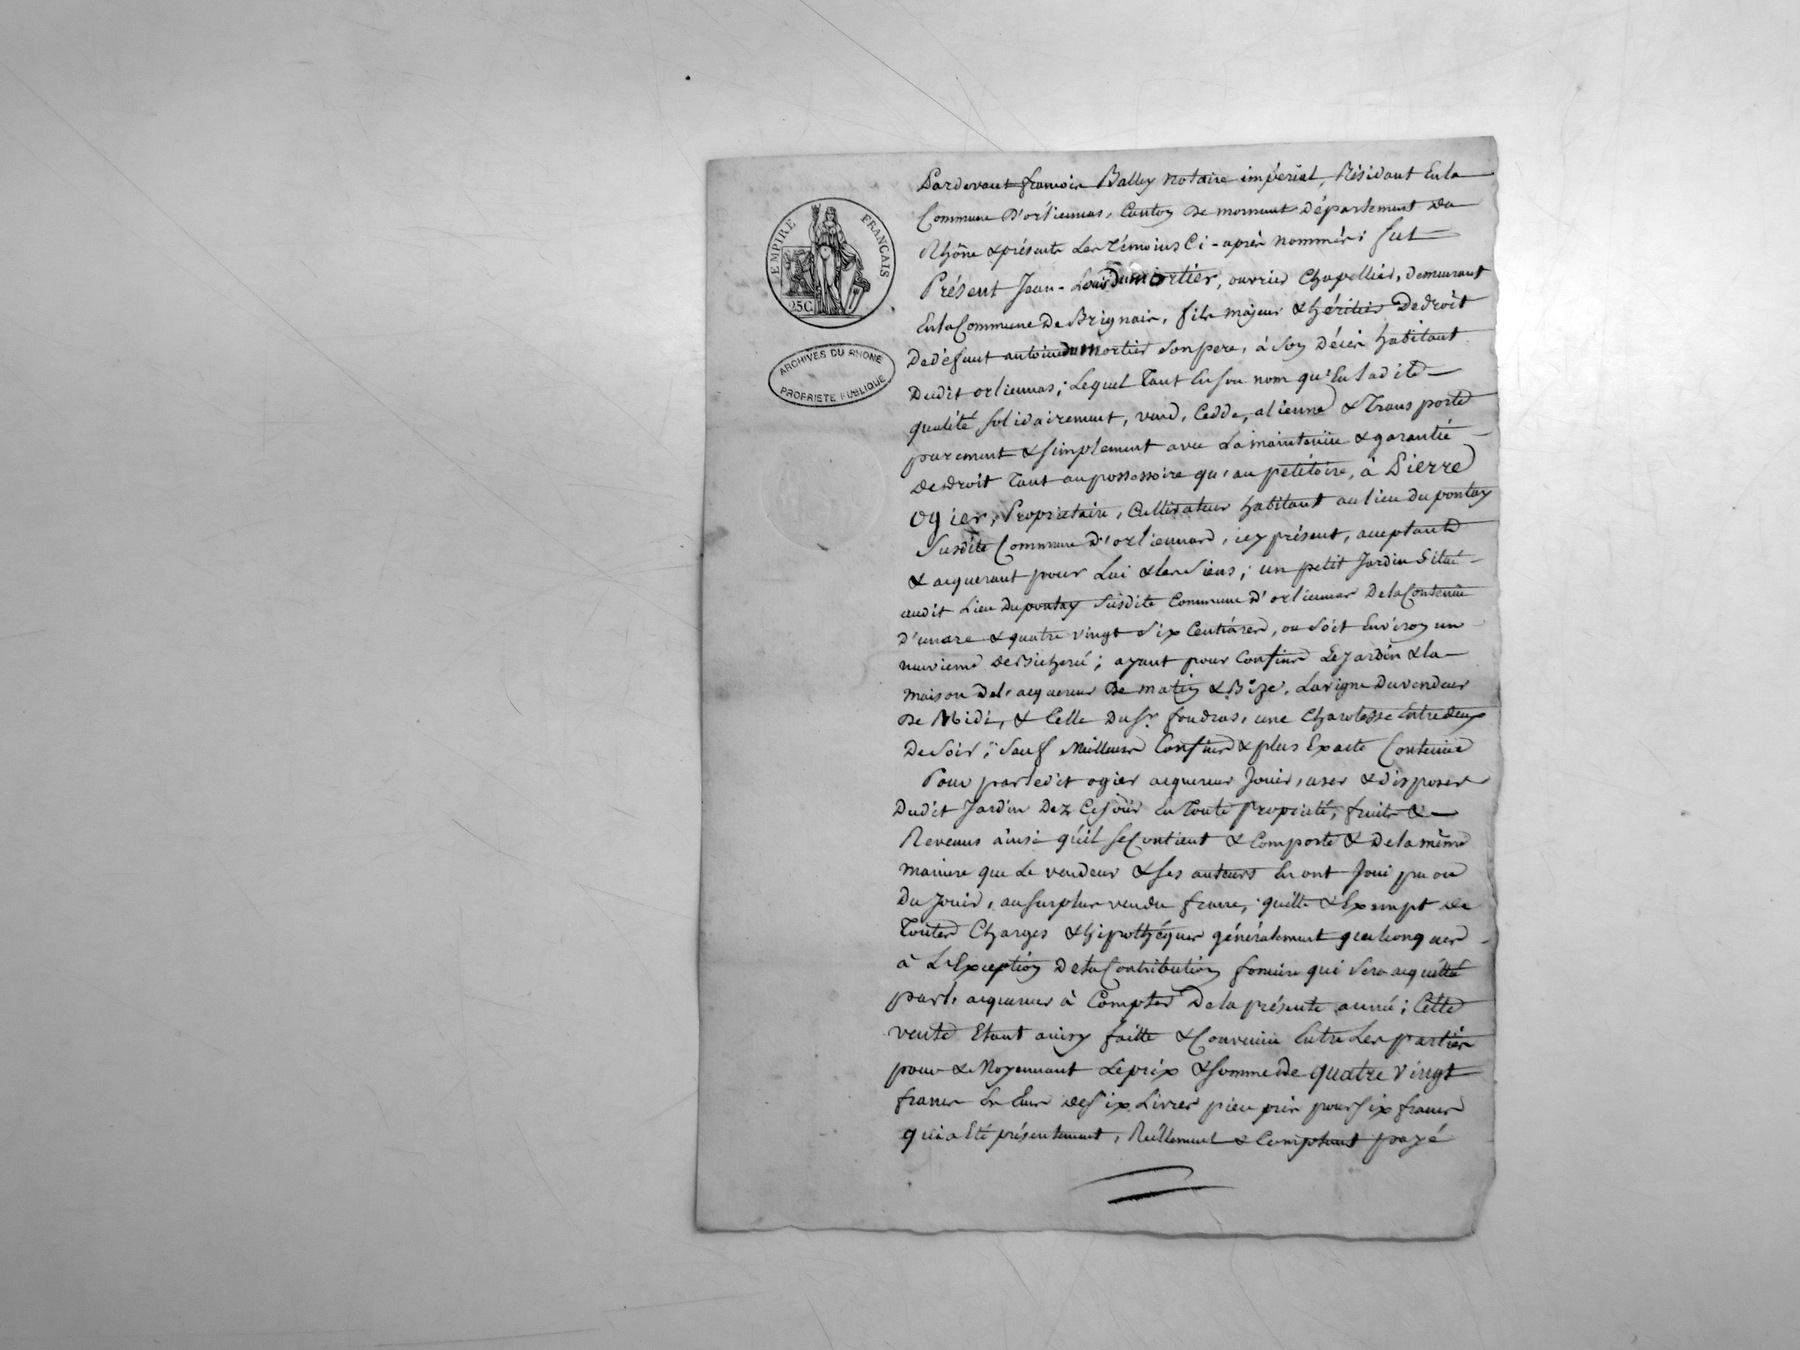 EMPIRE FRANÇAIS
25C
ARCHIVES DU RHONE
PROPRIETE PUBLIQUE
Pardevant francois Balley Notaire impérial, Résidant En la
Commune D'orliennas, Canton De mornant Département du
Rhône & présents Les Témoins Ci-après nommés; fut
Présent Jean-Louis Dumortier, ouvrier Chapellier, Demeurant
En la Commune De Brignais, fils majeur & héritier De droit
De défunt antoine dumortier Son pere, à Son Décès habitant
Dudit orliennas; Lequel Tant En son nom qu'En ladite
qualité Solidairement, vend, Cedde, alienne & Transporte
purement & simplement avec La maintenüe & garantie
De droit Tant au possessoire qu'au petitoire, à Pierre
Ogier, Propriétaire, Cultivateur habitant au lieu du pontay
Susdite Commune D'orliennas, icy présent, acceptant
& acquerant pour Lui & les Siens; un petit Jardin Situé
audit Lieu Du pontay Susdite Commune D'orliennas De la Contenüe
D'un are & quatre vingt Six Centiares, ou Soit Environ un
neuvieme De Bicherée; ayant pour Confins Le Jardin & la
maison De l'acquereur De matin & Bize, La vigne Du vendeur
De Midi, & Celle Du Sr. foudras, une Charolesse Entredeux
De Soir; Sauf Meilleurs Confins & plus Exacte Contenüe
Pour par ledit ogier acquereur Jouir, user & disposer
Dudit Jardin Dez Cejour En Toute Propriété, fruits &
Revenus ainsi qu'il Se Contient & Comporte & De la même
maniere que Le vendeur & Ses auteurs En ont Joui pu ou
Du Jouir, au Surplus vendu franc, quitte & Exempt de
Toutes Charges & hipothéques généralement quelconques
à L'Exception De la Contribution fonciere qui Sera acquittée
par l'acquereur à Compter De la présente année; Cette
vente Etant ainsy faitte & Convenüe Entre Les parties
pour & Moyennant Le prix & Somme de quatre vingt
francs En Ecus de Six Livres pieu pris pour Six francs
qui a Eté présentement, Réellement & Comptant payé